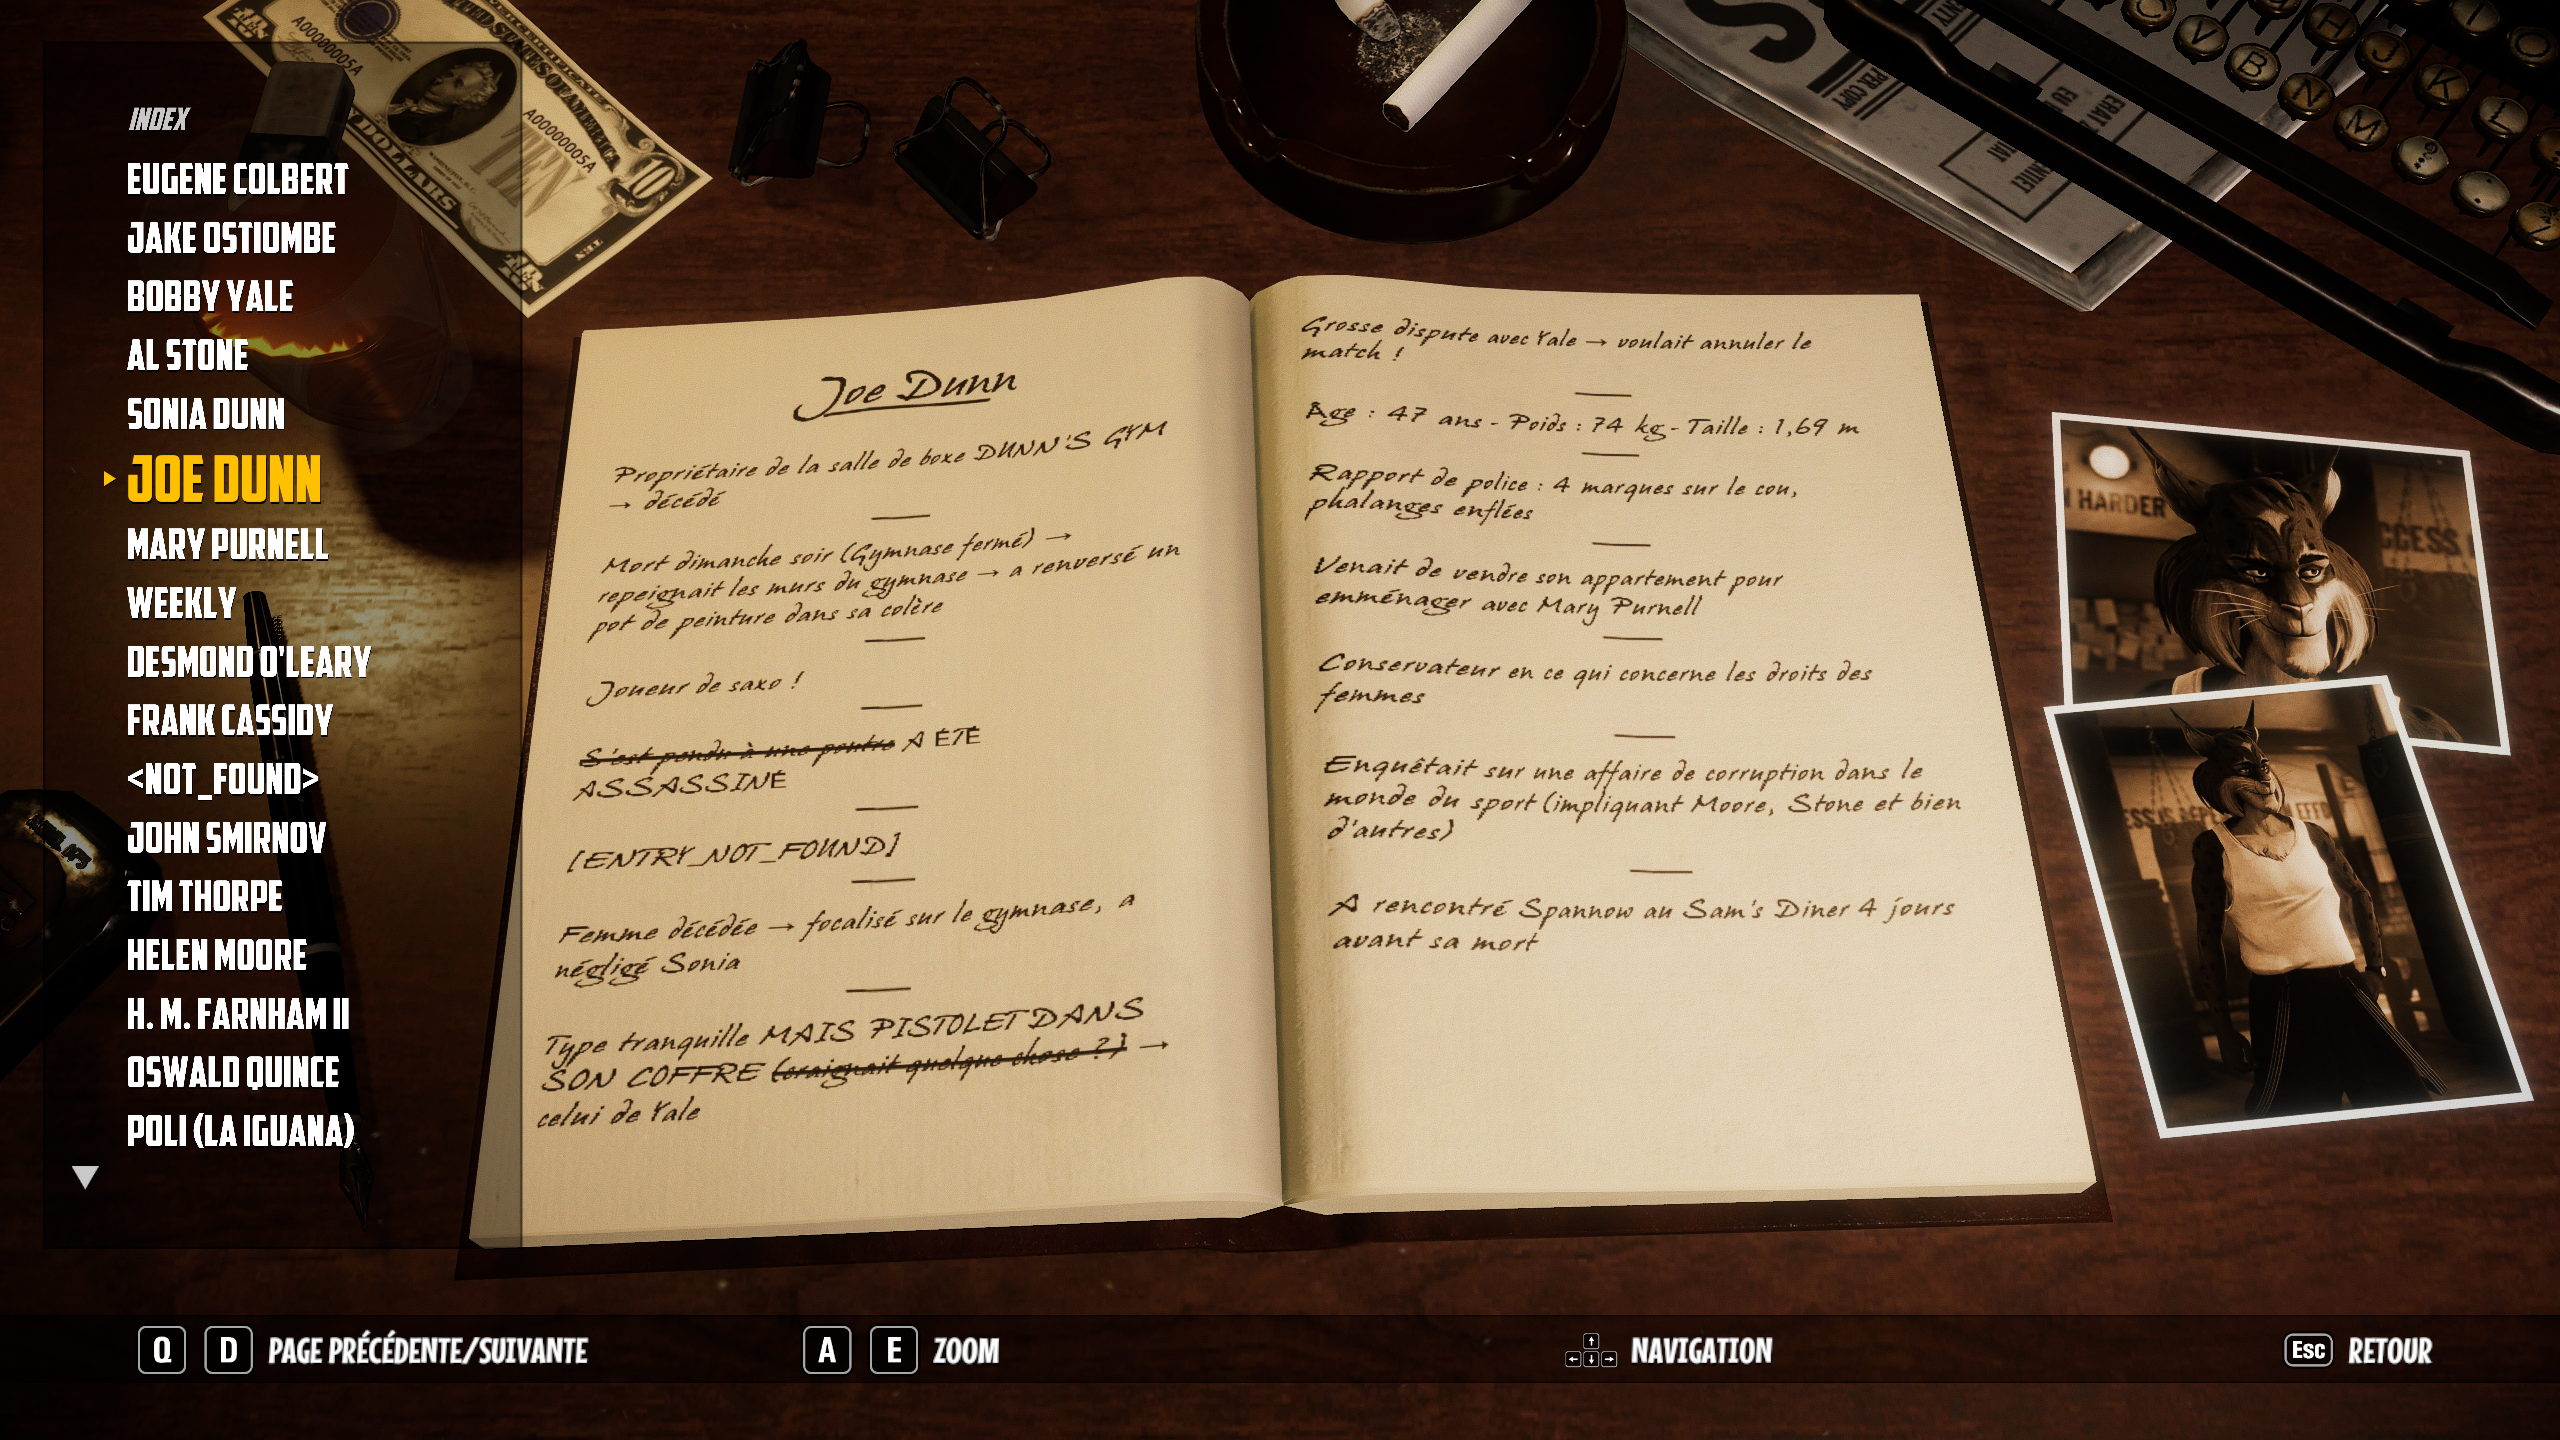 INDEX
EUGENE COLBERT
JAKE OSTIOMBE
BOBBY YALE
AL STONE
SONIA DUNN
JOE DUNN
MARY PURNELL
WEEKLY
DESMOND O'LEARY
FRANK CASSIDY
<NOT_FOUND>
JOHN SMIRNOV
TIM THORPE
HELEN MOORE
H. M. FARNHAM II
OSWALD QUINCE
POLI (LA IGUANA)
Joe Dunn
Propriétaire de la salle de boxe DUNN'S GYM
→ décédé
Mort dimanche soir (Gymnase fermé) →
repeignait les murs du gymnase → a renversé un
pot de peinture dans sa colère
Joueur de saxo !
S'est pendu à une poutre A ÉTÉ
ASSASSINÉ
[ENTRY_NOT_FOUND]
Femme décédée → focalisé sur le gymnase, a
négligé Sonia
Type tranquille MAIS PISTOLET DANS
SON COFFRE (craignait quelque chose ?) →
celui de Yale
Grosse dispute avec Yale → voulait annuler le
match !
Age : 47 ans - Poids : 74 kg - Taille : 1,69 m
Rapport de police : 4 marques sur le cou,
phalanges enflées
Venait de vendre son appartement pour
emménager avec Mary Purnell
Conservateur en ce qui concerne les droits des
femmes
Enquêtait sur une affaire de corruption dans le
monde du sport (impliquant Moore, Stone et bien
d'autres)
A rencontré Spannow au Sam's Diner 4 jours
avant sa mort
A00000005A
A00000005A
TEN
10
DOLLARS
PER COPY
HARDER
CCESS
C V B N M
H J K L
I O
Q D PAGE PRÉCÉDENTE/SUIVANTE
A E ZOOM
NAVIGATION
Esc RETOUR